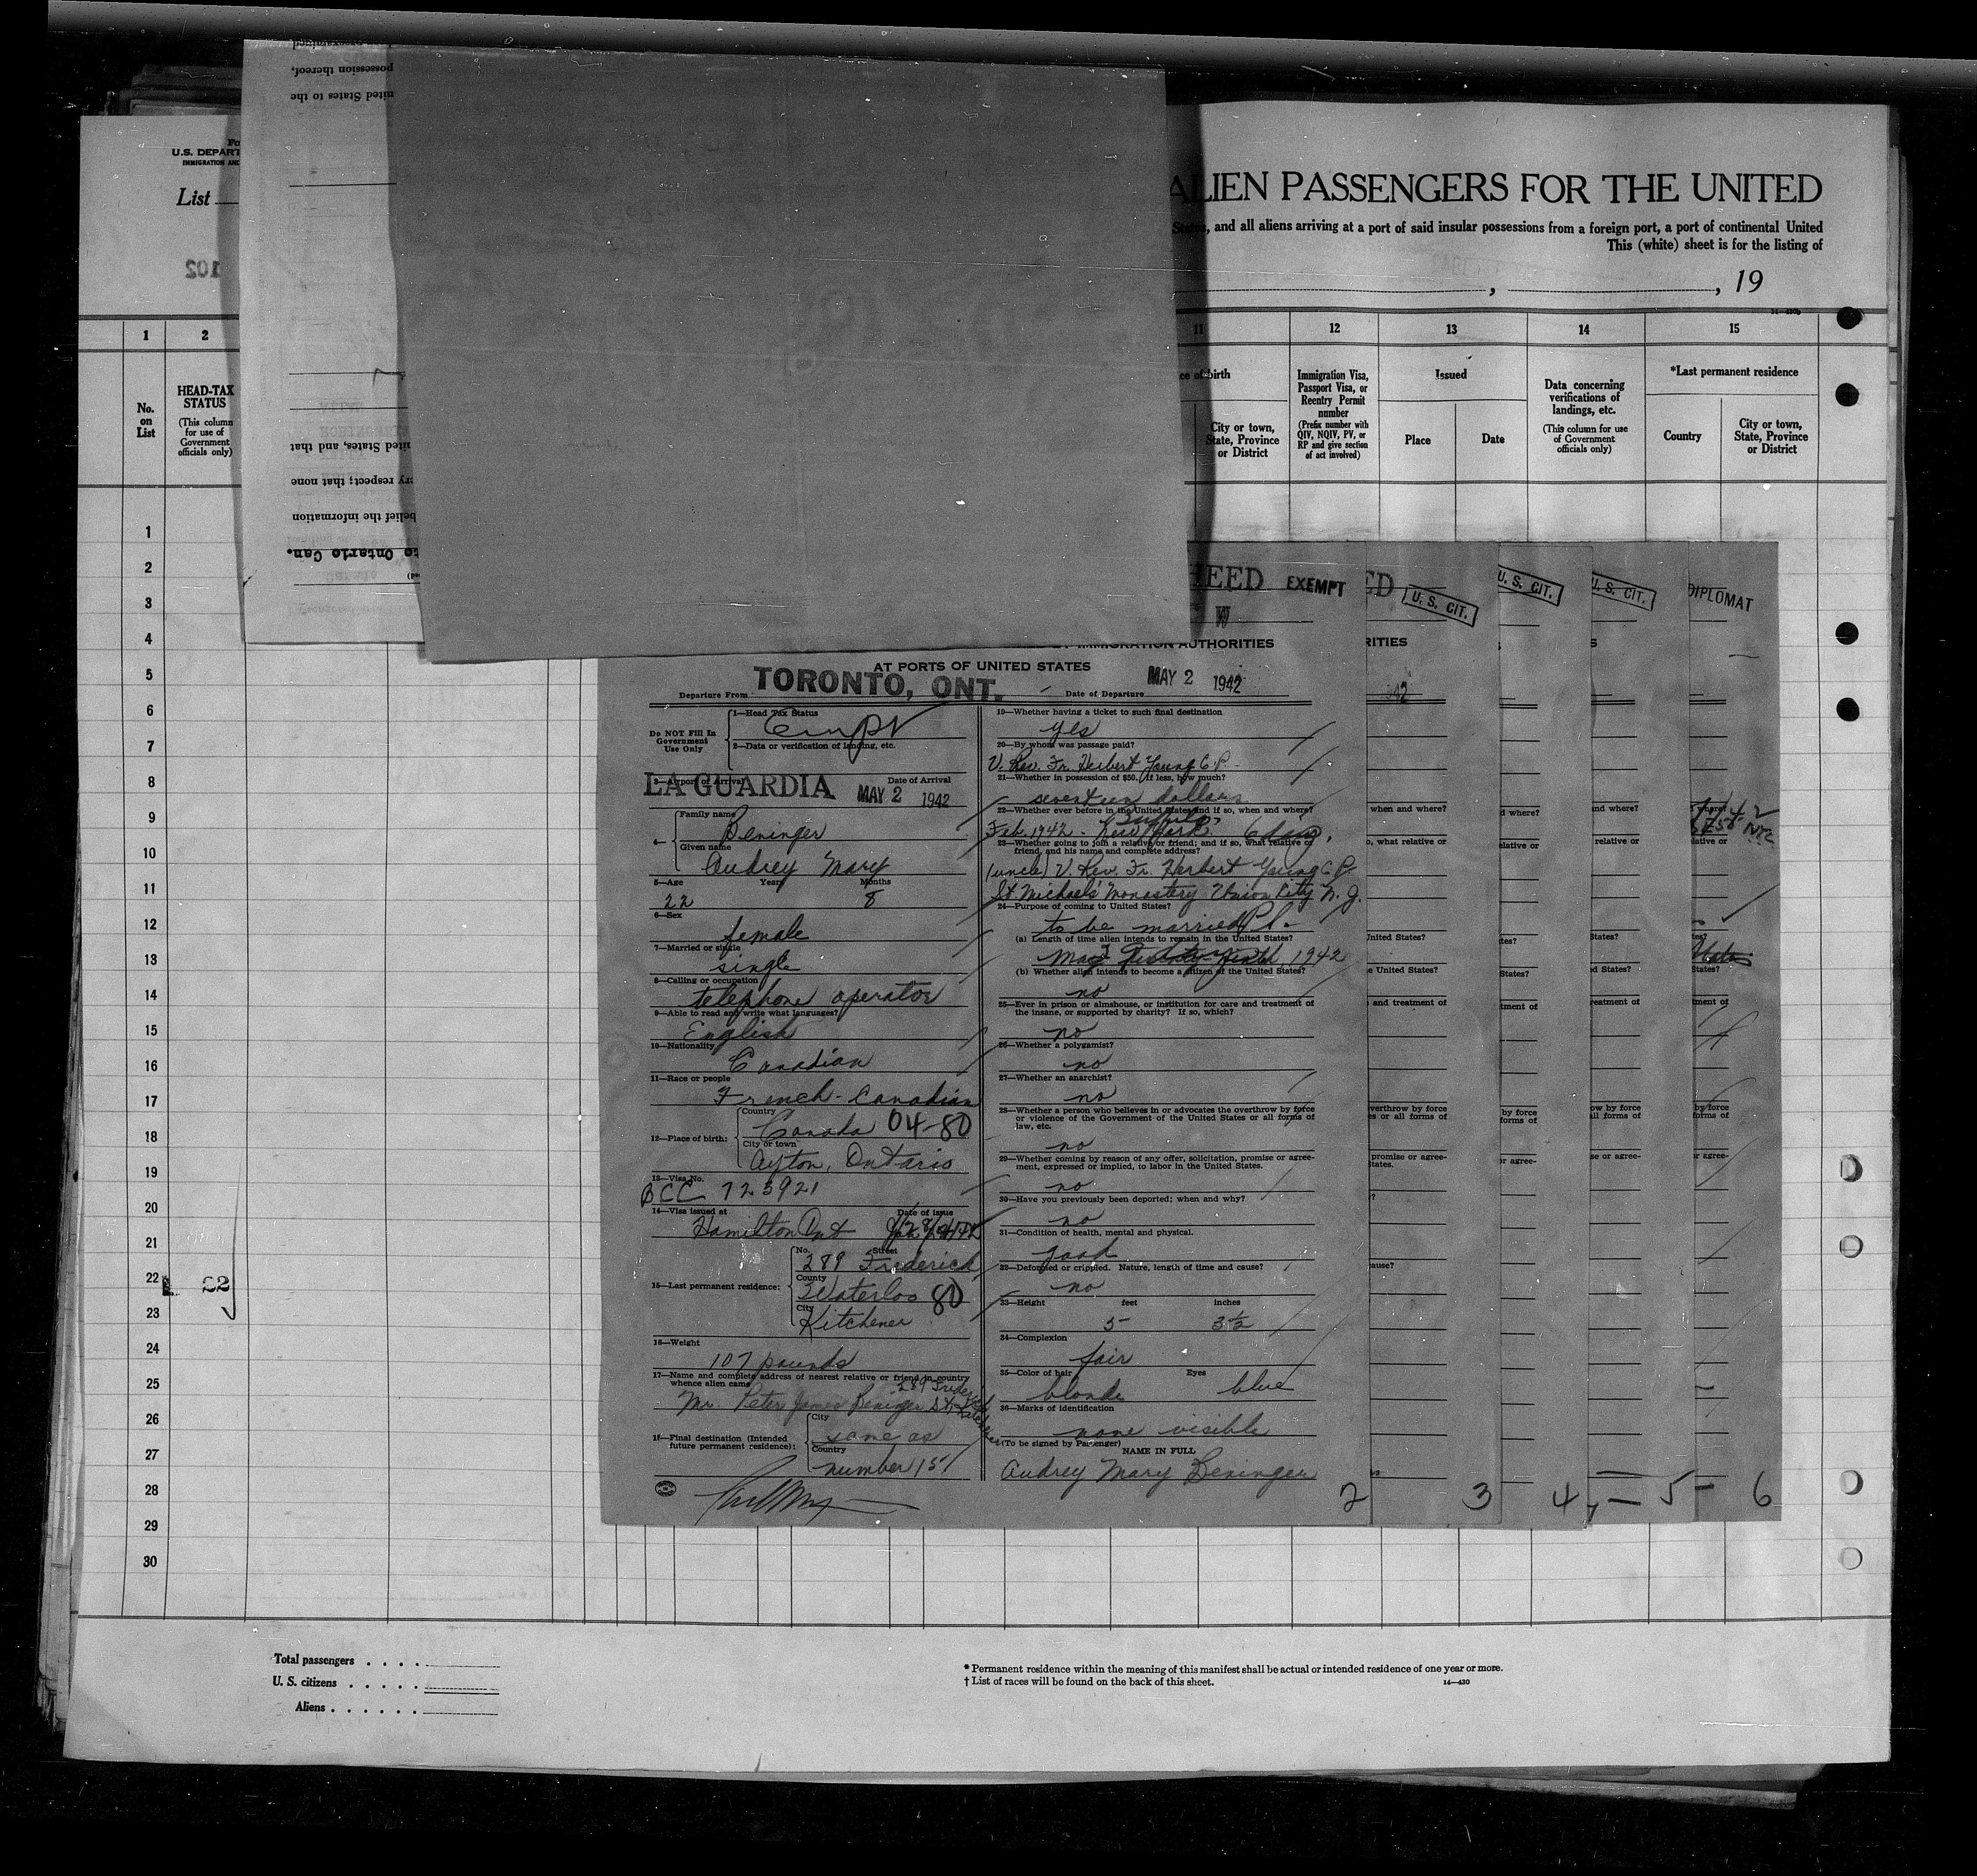 U.S. DEPART
IMMIGRATION AND
List
102
possession thereof,
nited States to the
nited States, and that
ry respect; that none
belief the information
to Ontario Can.
ALIEN PASSENGERS FOR THE UNITED
States, and all aliens arriving at a port of said insular possessions from a foreign port, a port of continental United
This (white) sheet is for the listing of
, , 19
1 2 11 12 13 14 15
No. on List
HEAD-TAX STATUS
(This column for use of Government officials only)
ce of birth
City or town, State, Province or District
Immigration Visa, Passport Visa, or Reentry Permit number
(Prefix number with QIV, NQIV, PV, or RP and give section of act involved)
Issued
Place
Date
Data concerning verifications of landings, etc.
(This column for use of Government officials only)
*Last permanent residence
Country
City or town, State, Province or District
1
2
3
4
5
6
7
8
9
10
11
12
13
14
15
16
17
18
19
20
21
22
23
24
25
26
27
28
29
30
22
HEED EXEMPT
W
ED U. S. CIT.
U. S. CIT.
U. S. CIT.
DIPLOMAT
IMMIGRATION AUTHORITIES
AT PORTS OF UNITED STATES
Departure From TORONTO, ONT. Date of Departure MAY 2 1942
Do NOT Fill In Government Use Only
1—Head Tax Status
Exempt
2—Data or verification of landing, etc.
3—Airport of Arrival Date of Arrival
LA GUARDIA MAY 2 1942
4— Family name
Beninger
Given name
Audrey Mary
5—Age Years Months
22 8
6—Sex
female
7—Married or single
single
8—Calling or occupation
telephone operator
9—Able to read and write what languages?
English
10—Nationality
Canadian
11—Race or people
French-Canadian
12—Place of birth: Country
Canada 04-80
City or town
Ayton, Ontario
13—Visa No.
BCC 723921
14—Visa issued at Date of issue
Hamilton Ont
15—Last permanent residence: No. Street
289 Frederick
County
Waterloo 80
City
Kitchener
16—Weight
107 pounds
17—Name and complete address of nearest relative or friend in country whence alien came
Mr. Peter James Beninger 289 Frederick St. Kitchener
18—Final destination (Intended future permanent residece): City
same as
Country
number 15
19—Whether having a ticket to such final destination
yes
20—By whom was passage paid?
V. Rev. Fr. Herbert Young C.P.
21—Whether in possession of $50. If less, how much?
seventeen dollars
22—Whether ever before in the United States and if so, when and where?
Feb. 1942 - Buffalo, New York.
23—Whether going to join a relative or friend; and if so, what relative or friend, and his name and complete address?
(uncle) V. Rev. Fr. Herbert Young C.P.
St. Michaels' Monastery Union City N. J.
24—Purpose of coming to United States?
to be married
(a) Length of time alien intends to remain in the United States?
May 1942
(b) Whether alien intends to become a citizen of the United States?
no
25—Ever in prison or almshouse, or institution for care and treatment of the insane, or supported by charity? If so, which?
no
26—Whether a polygamist?
no
27—Whether an anarchist?
no
28—Whether a person who believes in or advocates the overthrow by force or violence of the Government of the United States or all forms of law, etc.
no
29—Whether coming by reason of any offer, solicitation, promise or agreement, expressed or implied, to labor in the United States.
no
30—Have you previously been deported; when and why?
no
31—Condition of health, mental and physical.
good
32—Deformed or crippled. Nature, length of time and cause?
no
33—Height feet inches
5 3½
34—Complexion
fair
35—Color of hair Eyes
blonde blue
36—Marks of identification
none visible
(To be signed by Passenger)
NAME IN FULL
Audrey Mary Beninger
2 3 4 5 6
Total passengers
U. S. citizens
Aliens
* Permanent residence within the meaning of this manifest shall be actual or intended residence of one year or more.
† List of races will be found on the back of this sheet.
14—430